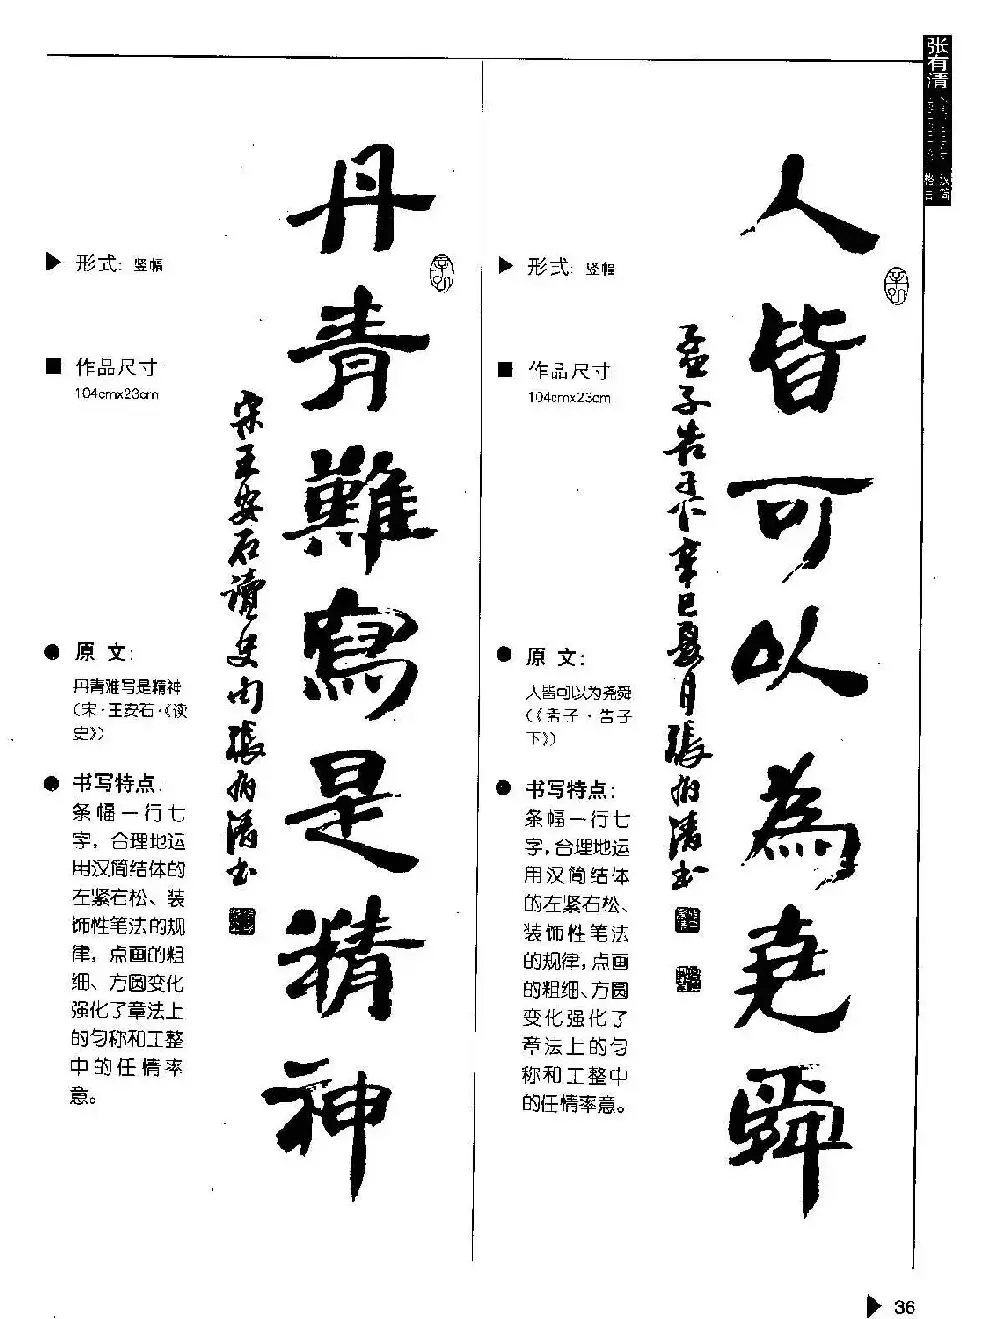 张有清
丹青難寫是精神
宋王安石讀史句張有清书
形式: 竖幅
作品尺寸
104cmx23cm
原 文:
丹青难写是精神
(宋·王安石·《读
史》)
书写特点:
条幅一行七
字，合理地运
用汉简结体的
左紧右松、装
饰性笔法的规
律，点画的粗
细、方圆变化
强化了章法上
的匀称和工整
中的任情率
意。
人皆可以為堯舜
孟子告子下辛巳夏月張有清书
形式: 竖幅
作品尺寸
104cmx23cm
原 文:
人皆可以为尧舜
(《孟子·告子
下》)
书写特点:
条幅一行七
字，合理地运
用汉简结体
的左紧右松、
装饰性笔法
的规律，点画
的粗细、方圆
变化强化了
章法上的匀
称和工整中
的任情率意。
36